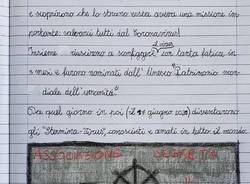 e scoprirono che lo strano essere aveva una missione im-
portante: salvarci tutti dal Coronavirus!
Insieme riuscirono a sconfiggere il virus con tanta fatica in
3 mesi e furono nominati dall'Unesco "Patrimonio mon-
diale dell'umanità"
Da quel giorno in poi (il giugno 2020) diventarono
gli "Stamina-Virus", conosciuti e amati in tutto il mondo
ASSOCIAZIONE